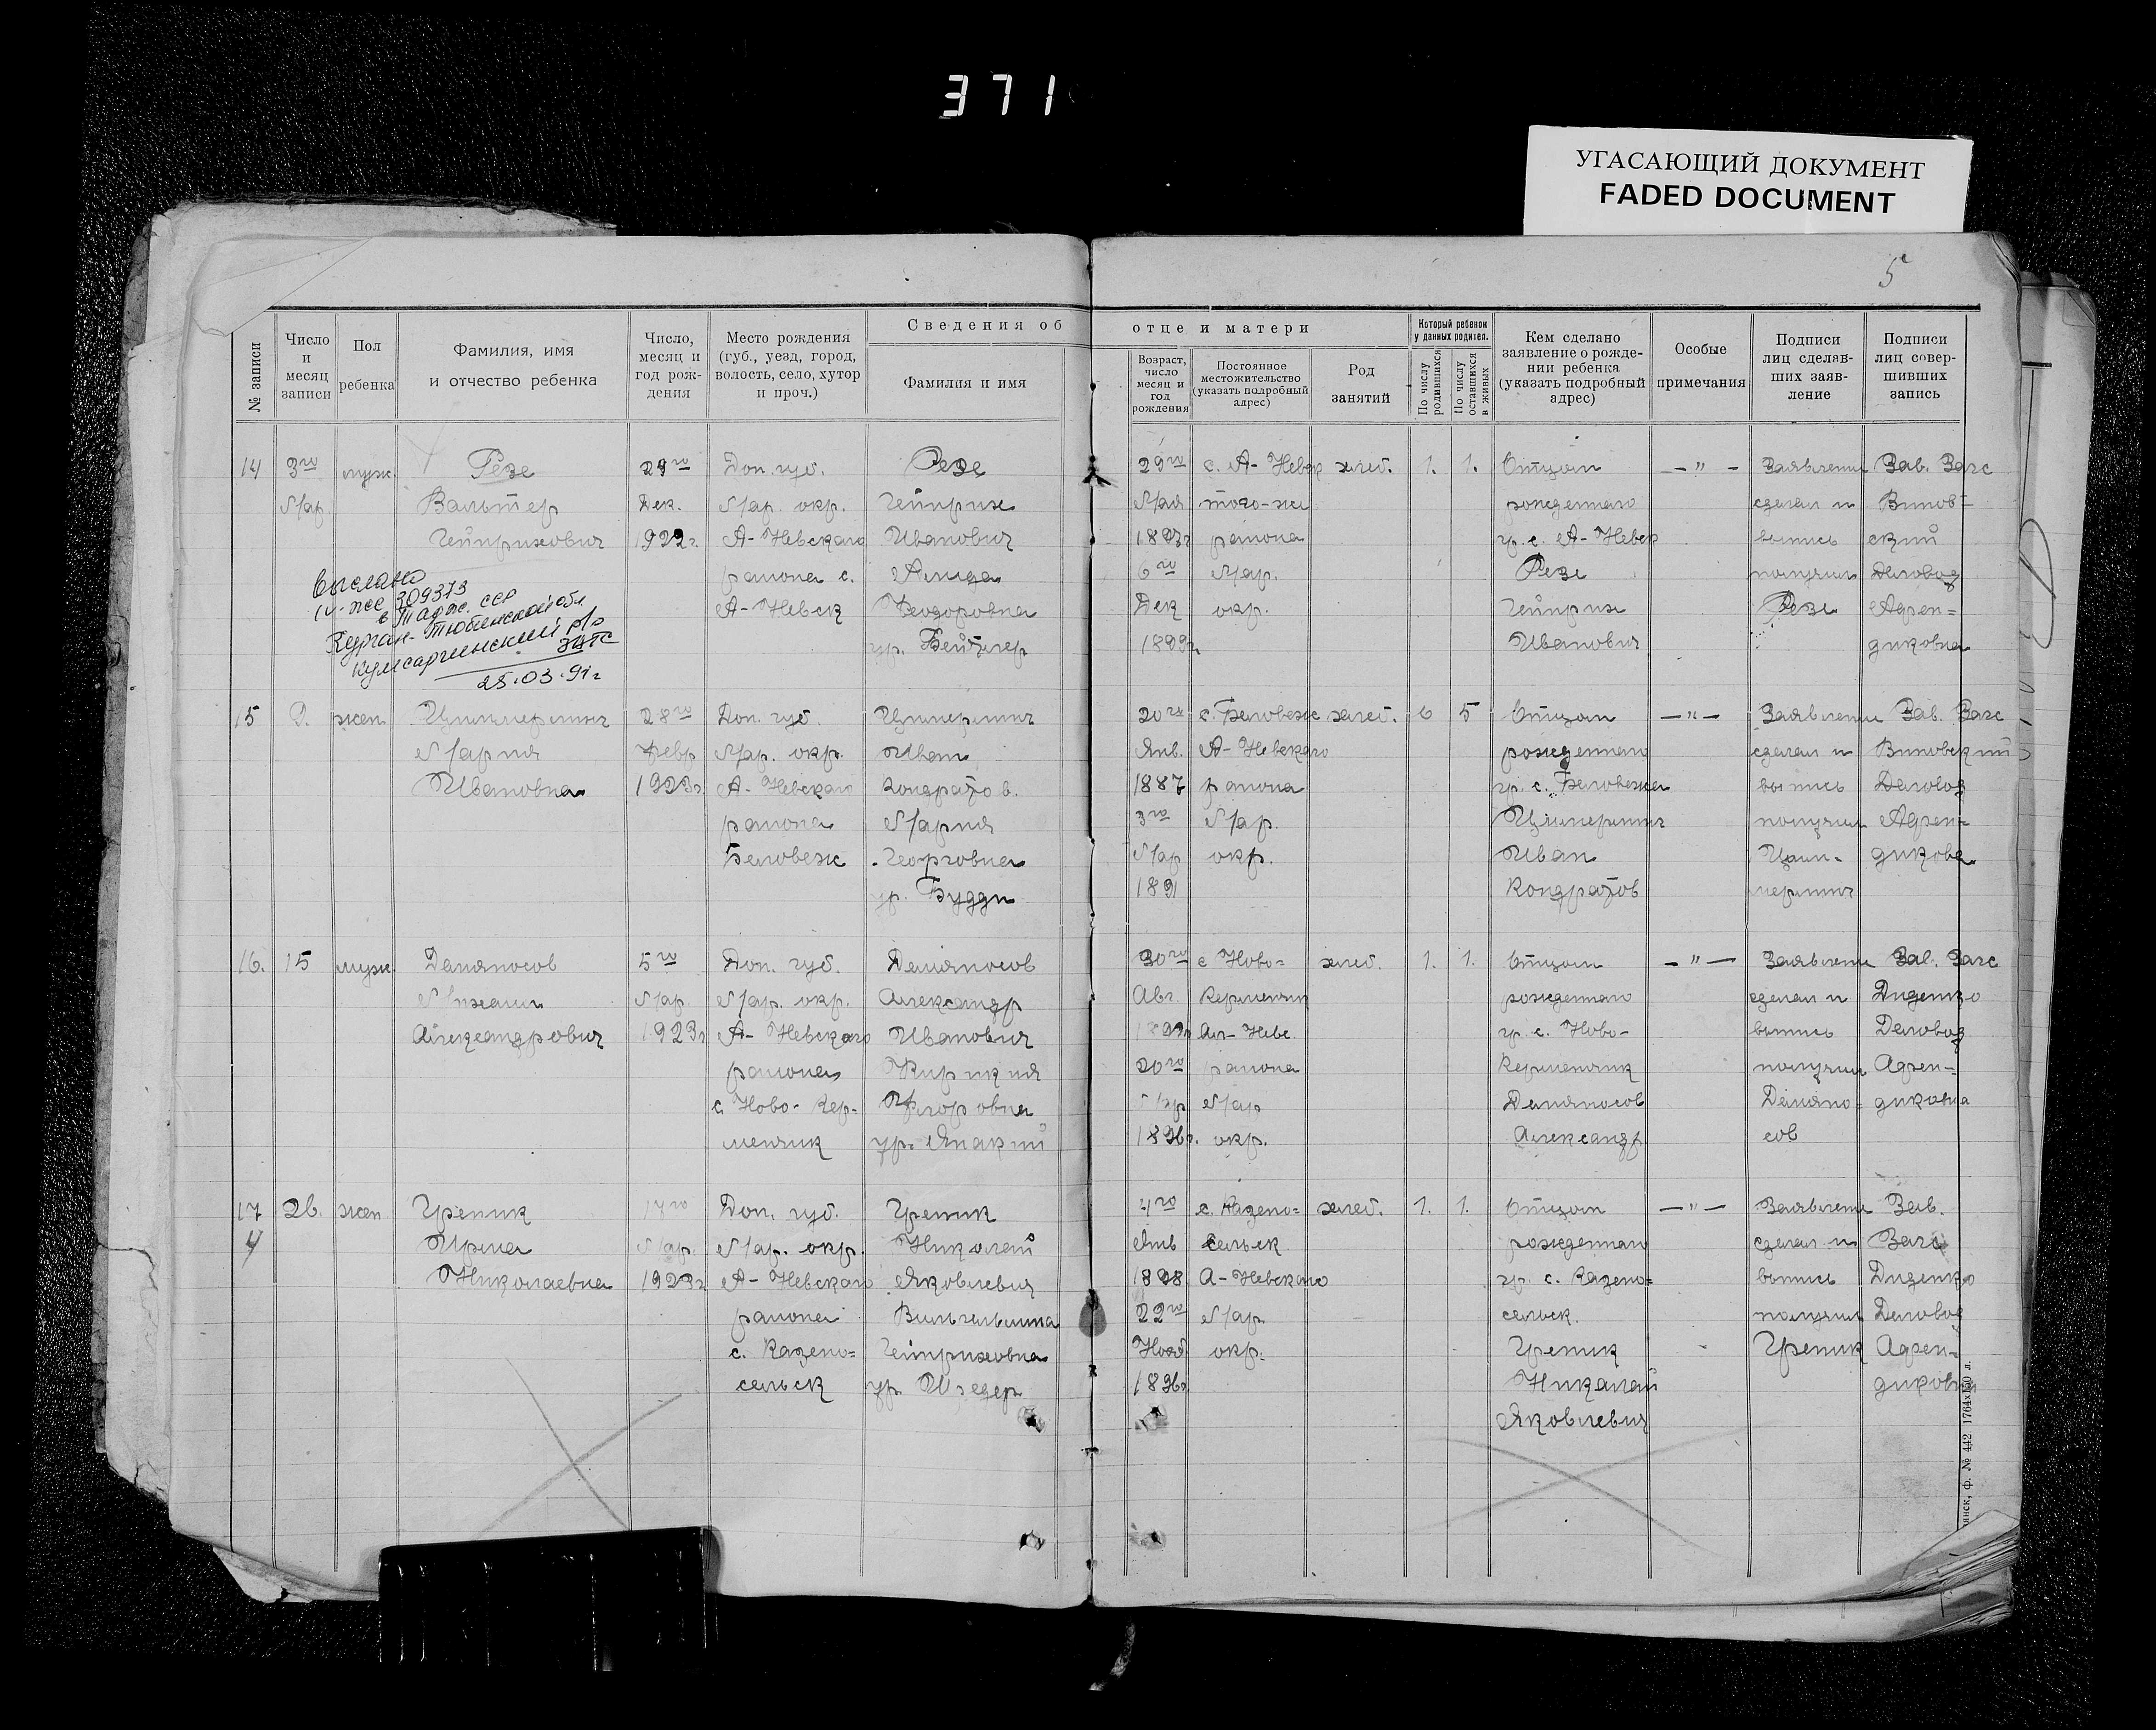 371
УГАСАЮЩИЙ ДОКУМЕНТ
FADED DOCUMENT
5
№ записи
Число и месяц записи
Пол ребенка
Фамилия, имя и отчество ребенка
Число, месяц и год рождения
Место рождения (губ., уезд, город, волость, село, хутор и проч.)
Сведения об отце и матери
Фамилия и имя
Возраст, число месяц и год рождения
Постоянное местожительство (указать подробный адрес)
Род занятий
Который ребенок у данных родител.
По числу родившихся
По числу оставшихся в живых
Кем сделано заявление о рождении ребенка (указать подробный адрес)
Особые примечания
Подписи лиц сделавших заявление
Подписи лиц совершивших запись
14 3го муж. Резе 29го Дон. губ. Резе 29го с. А-Невск хлеб. 1. 1. Отцом — " — Заявление Зав. Загс
Мар. Вальтер Дек. Мар. окр. Гейнрих Мая того-же рожденного сделал и Винов-
Гейнрихович 1922г. А-Невского Иванович района гр. с. А-Невск выпись ский
района с. 6го Мар. Резе получил Деловод
А-Невск Феодоровна Дек окр. Гейнрих Резе Адрен-
ур. Иванович диковна
Выслано
309373
в Тадж. ССР
Курган-Тюбинской обл.
Кумсангинский р/о
ЗАГС
25.03.91г
15 жен Циммерлинг 28го Дон. губ. 20го с. Беловеж хлеб. 6 5 Отцом — " — Заявление Зав. Загс
Мария Февр Мар. окр. Иван Янв. А-Невского рожденного сделал и Виновский
Ивановна 1923г. А-Невского Кондратов. 1887 района гр. с. Беловежа выпись Деловод
района Мария 3го Мар. получил Адрен-
Беловеж Георговна Мар окр. Иван дикова
ур. Будди 1891 Кондратов
16. 15 муж. 5го Дон. губ. 30го с Ново- хлеб. 1. 1. Отцом — " — Заявление Зав. Загс
Михаил Мар. Мар. окр. Александр Авг. Керменчик рожденного сделал и Диденко
Александрович 1923г А-Невского Иванович Ал-Невс. гр. с. Ново- выпись Деловод
района Кирикия 20го района Керменчик получил Адрен-
с. Ново-Кер- Мар диковна
менчик ур. 1896г. окр. Александр. сов
17 26. жен Греник 17го Дон. губ. Греник 4го с. Казено- хлеб. 1. 1. Отцом — " — Заявление Зав.
4 Ирма Мар. Мар. окр. Николай Янв сельск рожденного сделал и Загс
Николаевна 1923г А-Невского Яковлевич 1898 А-Невского гр. с. Казено- выпись Диденко
района Вильгельмина 22го Мар. сельск. получил Деловод
с. Казено- Гейнриховна Нояб окр. Греник Греник Адрен-
сельск ур. Шредер 1896г. Николай диковна
Яковлевич
ф. № 442 1764х150 л.